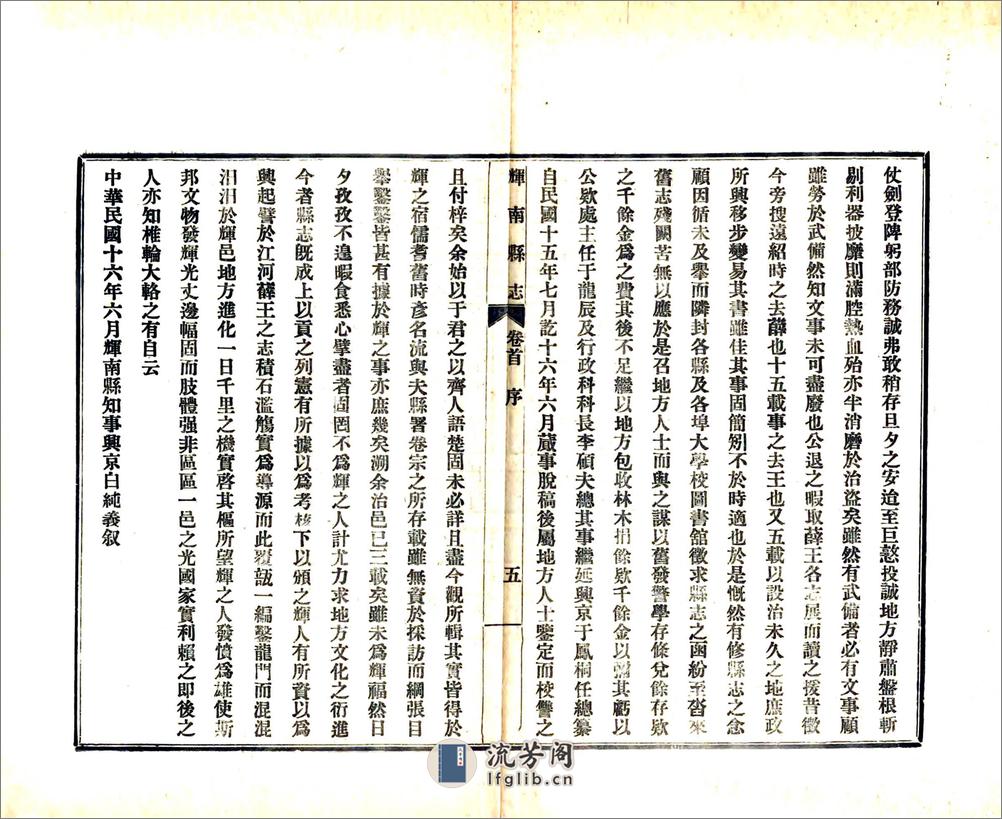 仗劍登陴躬部防務誠弗敢稍存旦夕之安迨至巨憝投誠地方靜肅盤根斬
剔利器披靡則滿腔熱血殆亦半消磨於治盜矣雖然有武備者必有文事顧
雖勞於武備然知文事未可盡廢也公退之暇取薛王各志展而讀之援昔徵
今旁搜遠紹時之去薛也十五載事之去王也又五載以設治未久之地庶政
所興移步變易其書雖佳其事固簡矧不於時適也於是慨然有修縣志之念
顧因循未及舉而隣封各縣及各埠大學校圖書館徵求縣志之函紛至沓來
舊志殘闕苦無以應於是召地方人士而與之謀以舊發警學存條兌餘存欵
之千餘金爲之費其後不足繼以地方包收林木捐餘欵千餘金以彌其虧以
公欵處主任于龍辰及行政科科長李碩夫總其事繼延興京于鳳桐任總纂
自民國十五年七月訖十六年六月蕆事脫稿後屬地方人士鑒定而校讐之
輝南縣志 卷首 序 五
且付梓矣余始以于君之以齊人語楚固未必詳且盡今觀所輯其實皆得於
輝之宿儒耆舊時彥名流與夫縣署卷宗之所存載雖無資於採訪而綱張目
舉鑿鑿皆甚有據於輝之事亦庶幾矣溯余治邑已三載矣雖未爲輝福然日
夕孜孜不遑暇食悉心擘畫者固罔不爲輝之人計尤力求地方文化之衍進
今者縣志既成上以貢之列憲有所據以爲考核下以頒之輝人有所資以爲
興起譬於江河薛王之志積石濫觴實爲導源而此覆瓿一編鑿龍門而混混
汨汨於輝邑地方進化一日千里之機實啓其樞所望輝之人發憤爲雄使斯
邦文物發輝光丈邊幅固而肢體强非區區一邑之光國家實利賴之即後之
人亦知椎輪大輅之有自云
中華民國十六年六月輝南縣知事興京白純義叙
流芳阁
lfglib.cn